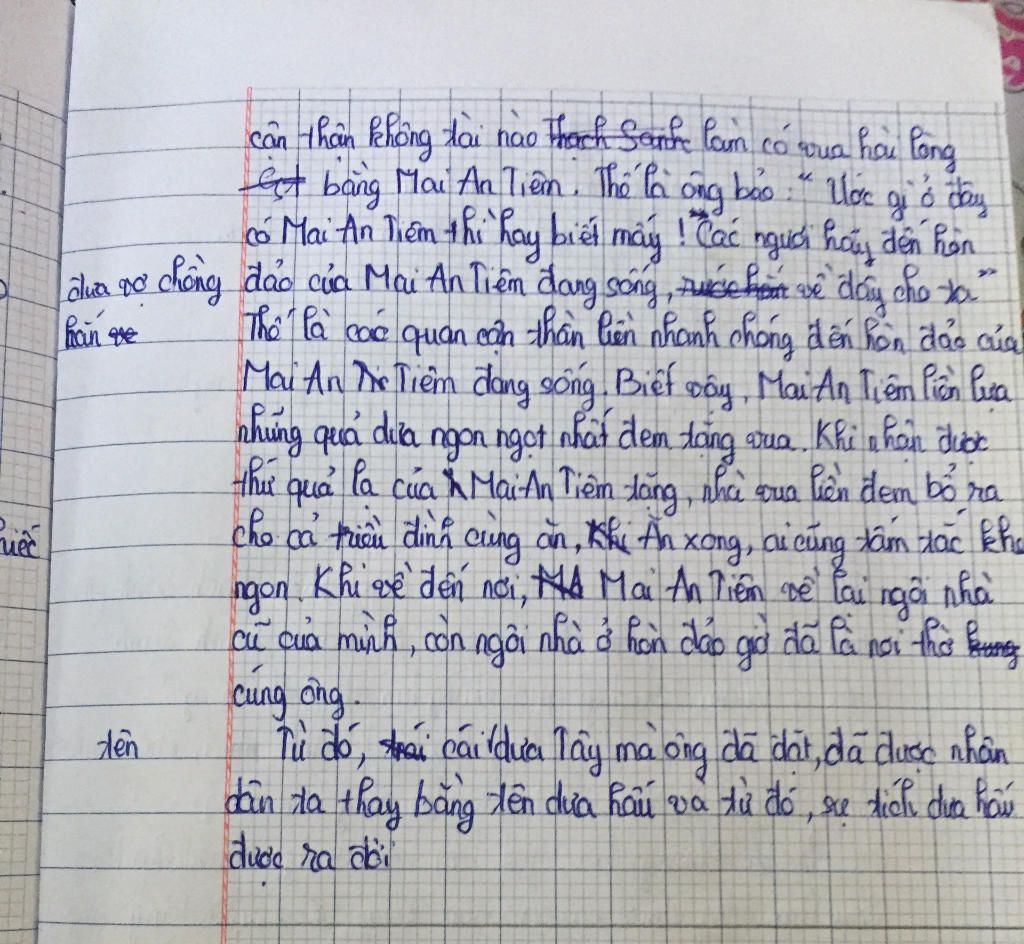 cận thân không tài nào Thạch Sanh làm có vua hài lòng
bằng Mai An Tiêm. Thế là ông bảo: "Ước gì ở đây
có Mai An Tiêm thì hay biết mấy! "Các ngươi hãy đến hòn
đưa vợ chồng đảo của Mai An Tiêm đang sống, về đây cho ta"
hắn về Thế là các quan cận thân liền nhanh chóng đến hòn đảo của
Mai An Tiêm đang sống. Biết vậy, Mai An Tiêm liền lựa
những quả dưa ngon ngọt nhất đem tặng vua. Khi nhận được
thứ quả lạ của Mai An Tiêm tặng, nhà vua liền đem bổ ra
cho cả triều đình cùng ăn, Khi Ăn xong, ai cũng tấm tắc
ngon. Khi về đến nơi, Mai An Tiêm về lại ngôi nhà
cũ của mình, còn ngôi nhà ở hòn đảo giờ đã là nơi thờ
cúng ông.
tên Từ đó, trái cái dưa Tây mà ông đã đặt, đã được nhân
dân ta thay bằng tên dưa hấu và từ đó, sự tích dưa hấu
được ra đời